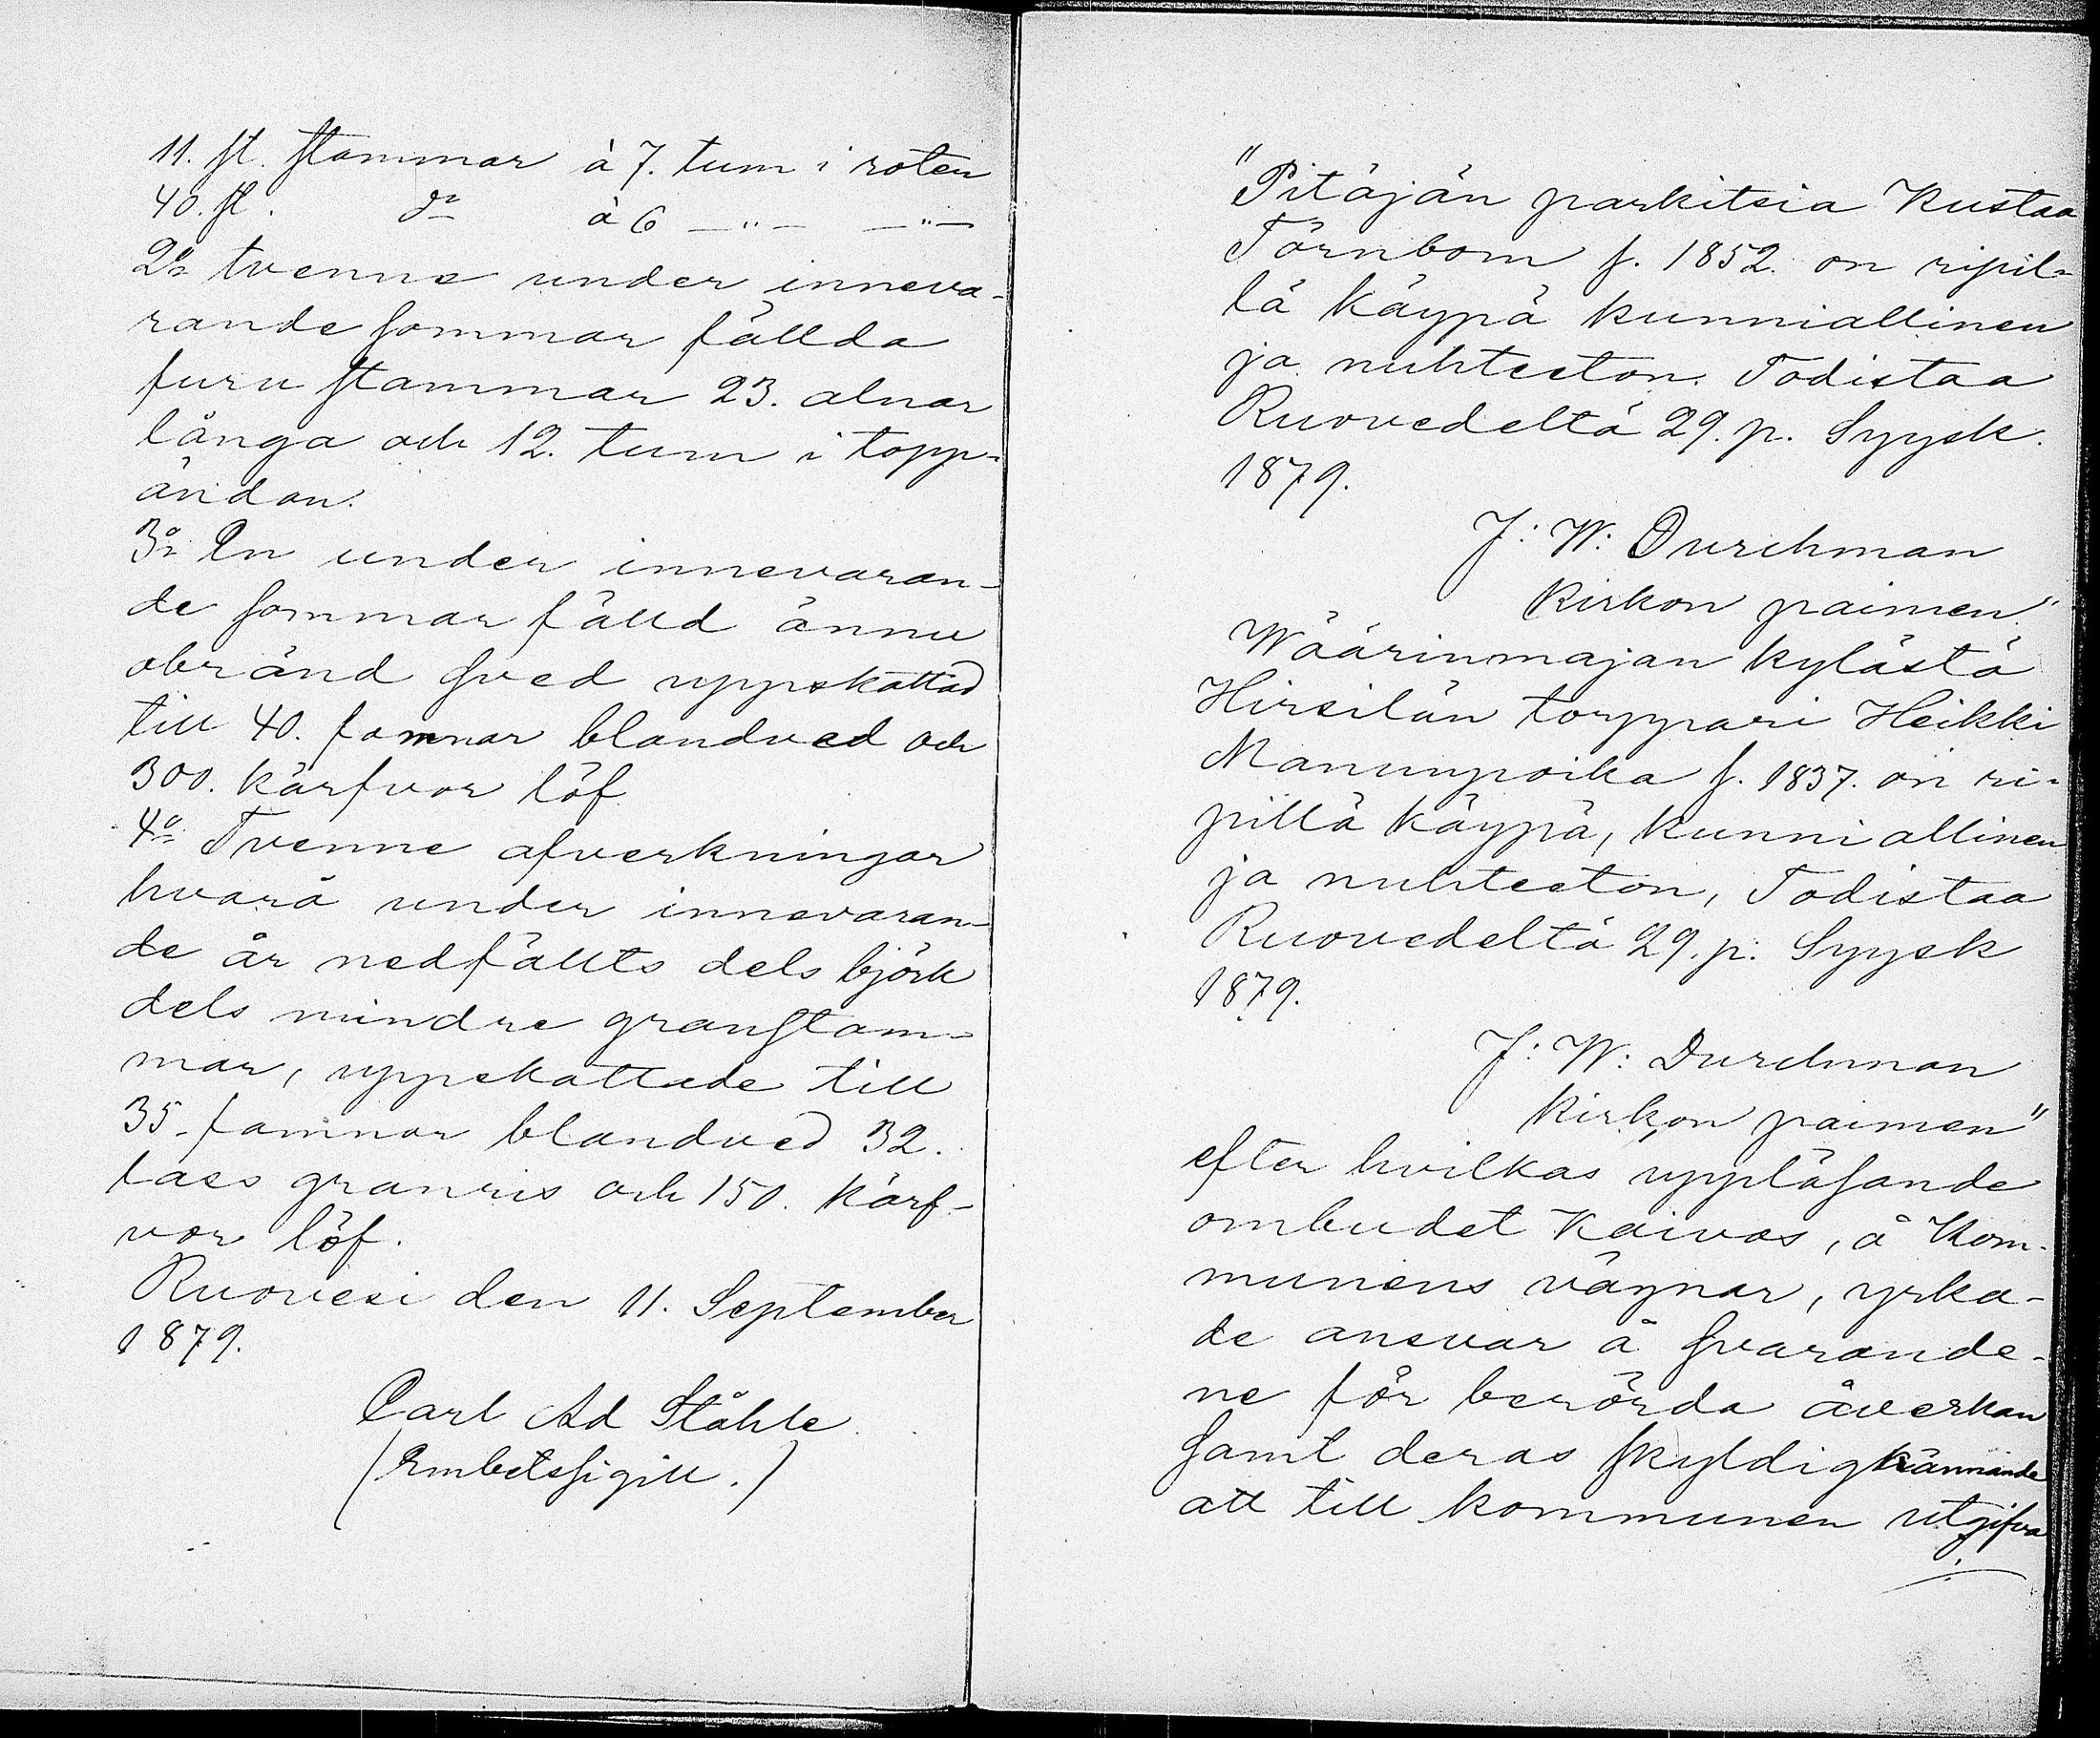 11. st. stammar à 7. tum i roten
40. st. do à 6 —"— —"—
2o tvenne under inneva-
rande sommar fällda
furu stammar 23. alnar
långa och 12. tum i topp-
ändan.
3o En under innevaran-
de sommar fälld ännu
obränd sved uppskattad
till 40. famnar blandved och
300. kärfvor löf
4o Tvenne afverkningar
hvarå under innevaran-
de år nedfällts dels björk
dels mindre granstam-
mar, uppskattade till
35. famnar blandved 32.
lass granris och 150. kärf-
vor löf.
Ruovesi den 11. September
1879.
Carl Ad Ståhle
(Embetssigill.)
"Pitäjän parkitsia Kustaa
Törnbom s. 1852. on ripil-
lä käypä kunniallinen
ja nuhteeton. Todistaa
Ruovedeltä 29. p. Syysk.
1879.
J: W: Durchman
Kirkon paimen"
Wäärinmajan kylästä
Hirsilän torppari Heikki
Manunpoika s. 1837. on ri-
pillä käypä, kunniallinen
ja nuhteeton, Todistaa
Ruovedeltä 29. p: Syysk
1879.
J: W: Durchman
Kirkon paimen"
efter hvilkas uppläsande
ombudet Kaivos, å Kom-
munens vägnar, yrka-
de ansvar å svarande-
ne för berörda åverkan
samt deras skyldigkännande
att till kommunen utgifva